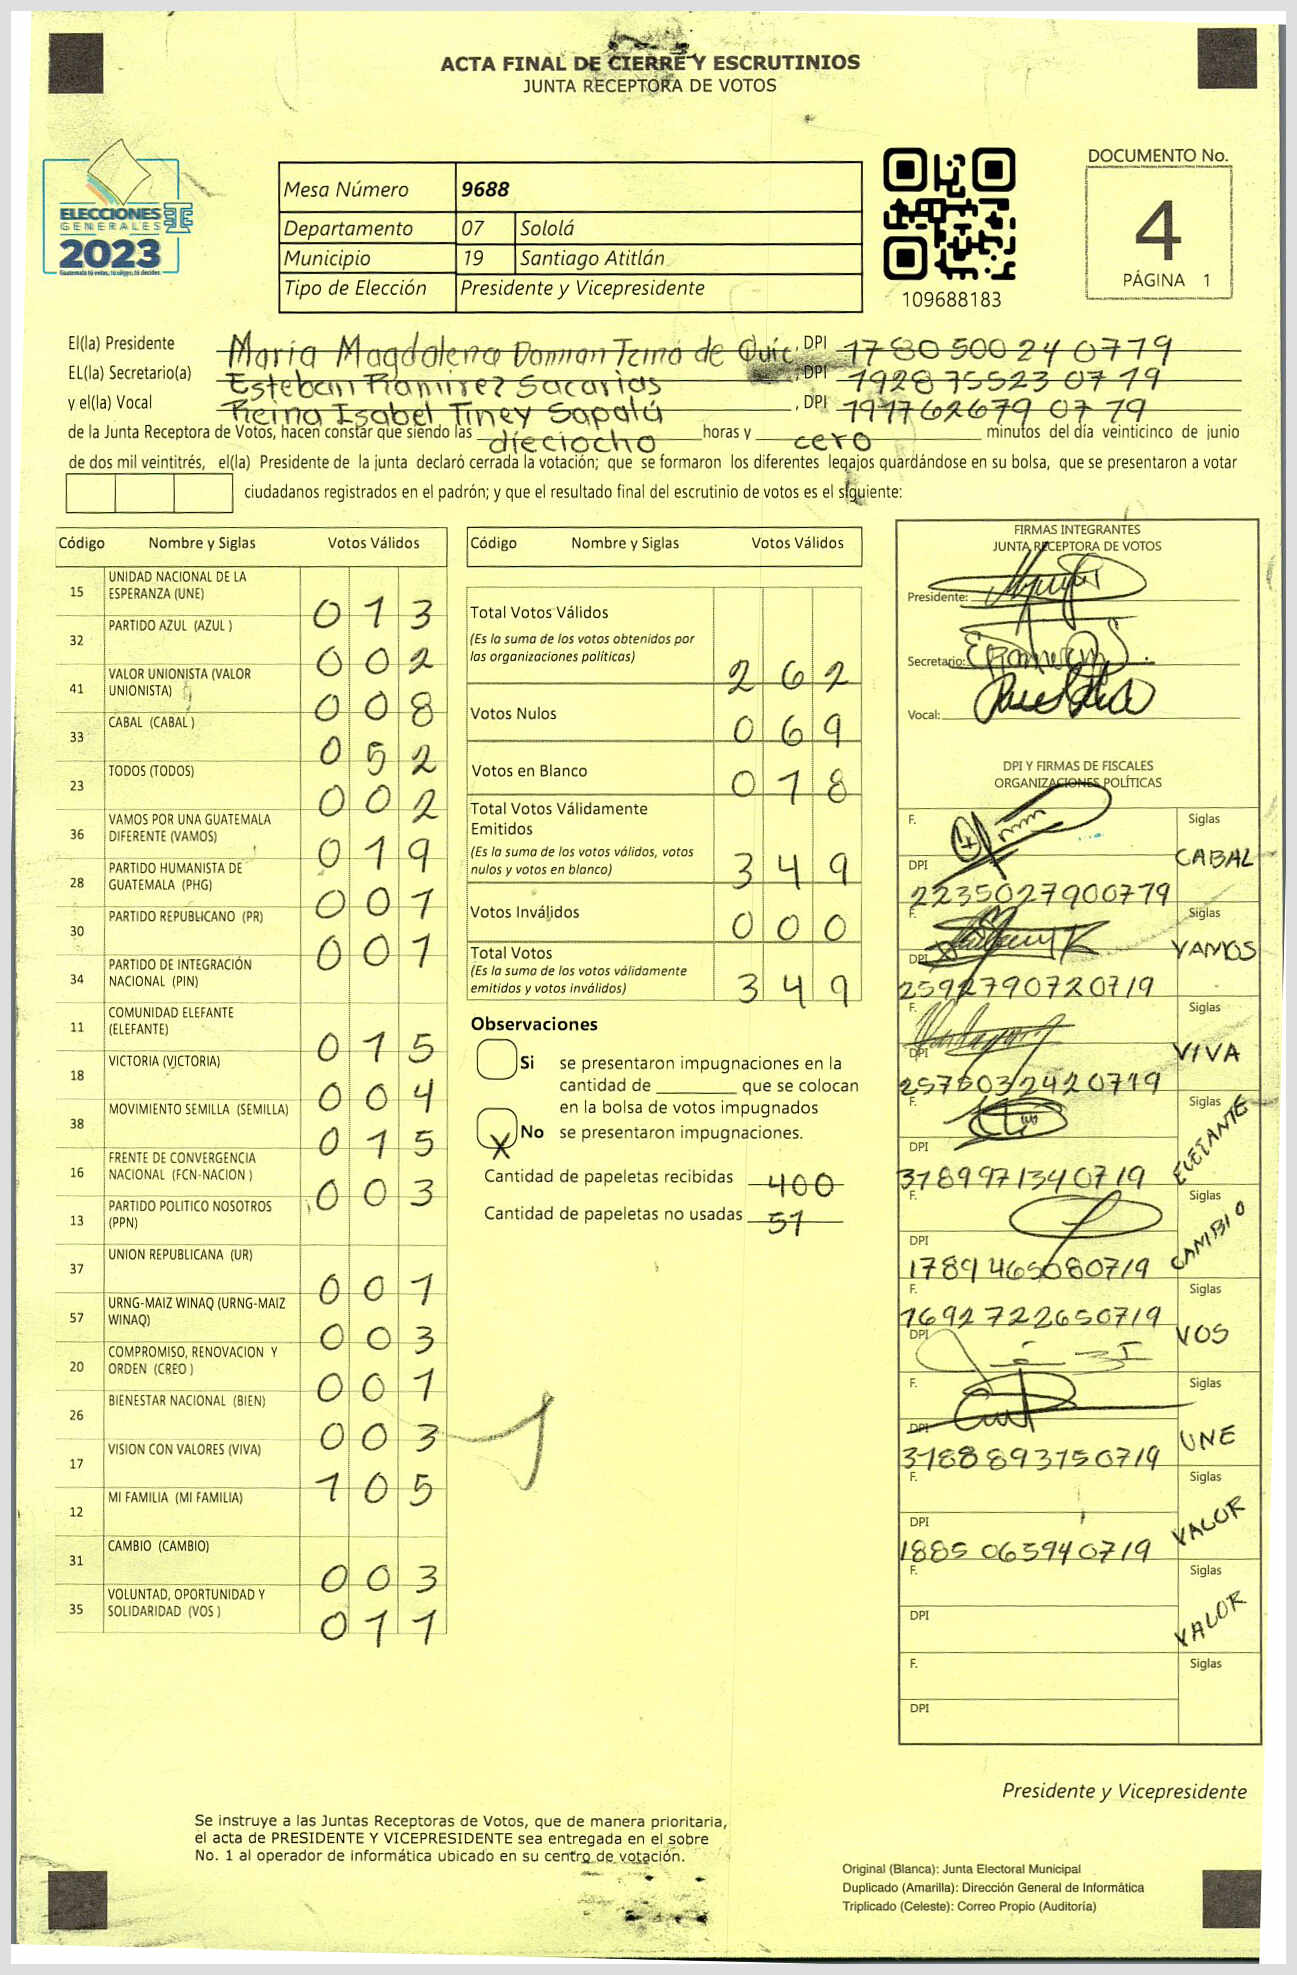 ACTA FINAL DE CIERRE Y ESCRUTINIOS
JUNTA RECEPTORA DE VOTOS
ELECCIONES
GENERALES
2023
Guatemala tú votas, tú eliges, tú decides
Mesa Número 9688
Departamento 07 Sololá
Municipio 19 Santiago Atitlán
Tipo de Elección Presidente y Vicepresidente
109688183
DOCUMENTO No.
4
PÁGINA 1
El(la) Presidente María Magdalena Damian Teina de Quic, DPI 1780500240719
EL(la) Secretario(a) Esteban Ramirez Sacarias, DPI 1928755230719
y el(la) Vocal Reina Isabel Tiney Sapalú, DPI 1917626790719
de la Junta Receptora de Votos, hacen constar que siendo las dieciocho horas y cero minutos del día veinticinco de junio
de dos mil veintitrés, el(la) Presidente de la junta declaró cerrada la votación; que se formaron los diferentes legajos quardándose en su bolsa, que se presentaron a votar
ciudadanos registrados en el padrón; y que el resultado final del escrutinio de votos es el siguiente:
Código Nombre y Siglas Votos Válidos
15 UNIDAD NACIONAL DE LA ESPERANZA (UNE) 013
32 PARTIDO AZUL (AZUL ) 002
41 VALOR UNIONISTA (VALOR UNIONISTA) 008
33 CABAL (CABAL ) 052
23 TODOS (TODOS) 002
36 VAMOS POR UNA GUATEMALA DIFERENTE (VAMOS) 019
28 PARTIDO HUMANISTA DE GUATEMALA (PHG) 001
30 PARTIDO REPUBLICANO (PR) 001
34 PARTIDO DE INTEGRACIÓN NACIONAL (PIN)
11 COMUNIDAD ELEFANTE (ELEFANTE) 015
18 VICTORIA (VICTORIA) 004
38 MOVIMIENTO SEMILLA (SEMILLA) 015
16 FRENTE DE CONVERGENCIA NACIONAL (FCN-NACION ) 003
13 PARTIDO POLITICO NOSOTROS (PPN)
37 UNION REPUBLICANA (UR) 001
57 URNG-MAIZ WINAQ (URNG-MAIZ WINAQ) 003
20 COMPROMISO, RENOVACION Y ORDEN (CREO ) 001
26 BIENESTAR NACIONAL (BIEN) 003
17 VISION CON VALORES (VIVA) 105
12 MI FAMILIA (MI FAMILIA)
31 CAMBIO (CAMBIO) 003
35 VOLUNTAD, OPORTUNIDAD Y SOLIDARIDAD (VOS ) 011
Código Nombre y Siglas Votos Válidos
Total Votos Válidos 262
(Es la suma de los votos obtenidos por las organizaciones políticas)
Votos Nulos 069
Votos en Blanco 018
Total Votos Válidamente Emitidos 349
(Es la suma de los votos válidos, votos nulos y votos en blanco)
Votos Inválidos 000
Total Votos 349
(Es la suma de los votos válidamente emitidos y votos inválidos)
Observaciones
Si se presentaron impugnaciones en la
cantidad de ________ que se colocan
en la bolsa de votos impugnados
X No se presentaron impugnaciones.
Cantidad de papeletas recibidas 400
Cantidad de papeletas no usadas 51
FIRMAS INTEGRANTES
JUNTA RECEPTORA DE VOTOS
Presidente:
Secretario:
Vocal:
DPI Y FIRMAS DE FISCALES
ORGANIZACIONES POLÍTICAS
F. Siglas CABAL
DPI 2235027900719
F. Siglas VAMOS
DPI 2592790720719
F. Siglas VIVA
DPI 2575032420719
F. Siglas ELEFANTE
DPI 3189971340719
F. Siglas CAMBIO
DPI 1789465080719
F. Siglas VOS
1692722650719
DPI
F. Siglas UNE
DPI 3188893750719
F. Siglas VALOR
DPI 1885065940719
F. Siglas VALOR
DPI
F. Siglas
DPI
Presidente y Vicepresidente
Se instruye a las Juntas Receptoras de Votos, que de manera prioritaria,
el acta de PRESIDENTE Y VICEPRESIDENTE sea entregada en el sobre
No. 1 al operador de informática ubicado en su centro de votación.
Original (Blanca): Junta Electoral Municipal
Duplicado (Amarilla): Dirección General de Informática
Triplicado (Celeste): Correo Propio (Auditoría)